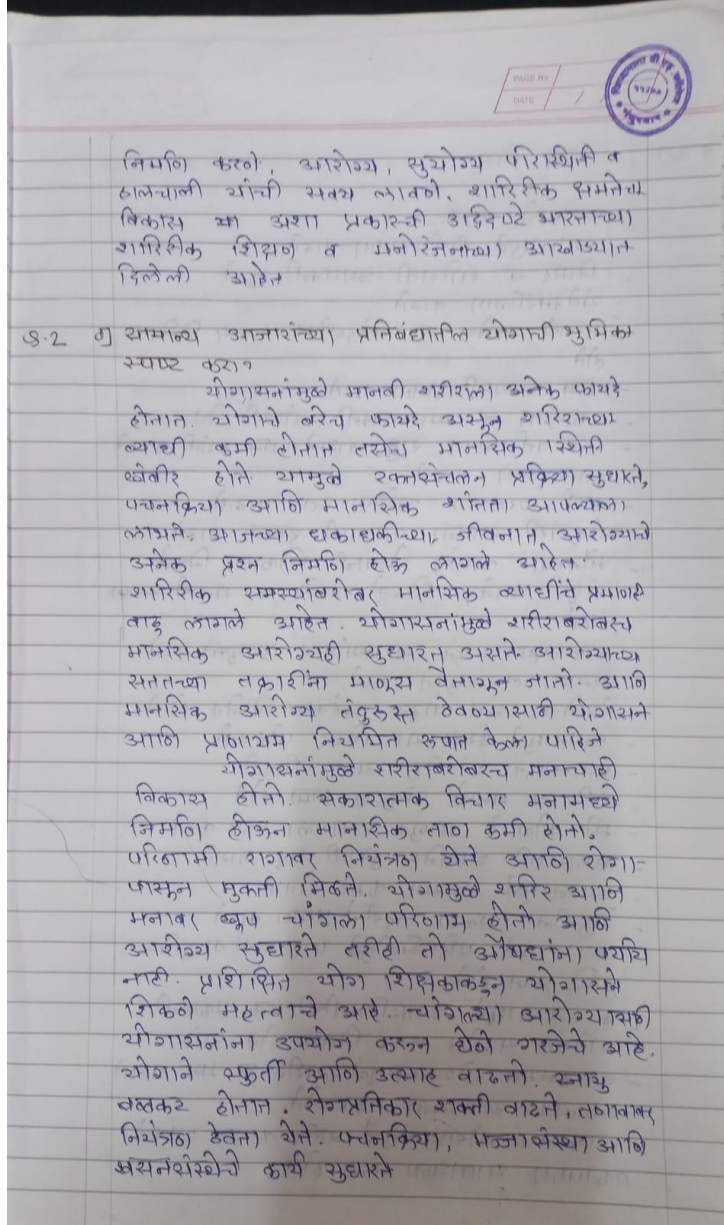 PAGE No
DATE / /
निर्माण करणे, आरोग्य, सुयोग्य परिस्थिती व
हालचाली यांची सवय लावणे, शारिरीक क्षमतेचा
विकास या अशा प्रकारची उद्दिष्टे भारताच्या
शारिरीक शिक्षण व मनोरंजनाच्या आराखड्यात
दिलेली आहेत
Q.2 सामान्य आजारांच्या प्रतिबंधातील योगाची भुमिका
स्पष्ट करा?
योगासनांमुळे मानवी शरीराला अनेक फायदे
होतात. योगाचे बरेच फायदे असून शरिराच्या
व्याधी कमी होतात तसेच मानसिक स्थिती
खंबीर होते यामुळे रक्तसंचलन प्रक्रिया सुधारते,
पचनक्रिया आणि मानसिक शांतता आपल्याला
लाभते. आजच्या धकाधकीच्या जीवनात आरोग्याचे
अनेक प्रश्न निर्माण होऊ लागले आहेत.
शारिरीक समस्यांबरोबर मानसिक व्याधींचे प्रमाणही
वाढु लागले आहेत. योगासनांमुळे शरीराबरोबरच
मानसिक आरोग्यही सुधारत असते आरोग्याच्या
सततच्या तक्रारींना माणूस वैतागून जातो. आणि
मानसिक आरोग्य तंदुरुस्त ठेवण्यासाठी योगासने
आणि प्राणायम नियमित रुपात केला पाहिजे
योगासनांमुळे शरीराबरोबरच मनाचाही
विकास होतो. सकारात्मक विचार मनामध्ये
निर्माण होऊन मानसिक ताण कमी होतो.
परिणामी रागावर नियंत्रण येते आणि रोगा-
पासून मुक्ती मिळते. योगामुळे शरिर आणि
मनावर खूप चांगला परिणाम होतो आणि
आरोग्य सुधारते तरीही तो औषधांना पर्याय
नाही. प्रशिक्षित योग शिक्षकाकडून योगासने
शिकणे महत्वाचे आहे. चांगल्या आरोग्यासाठी
योगासनांना उपयोग करून घेणे गरजेचे आहे.
योगाने स्फुर्ती आणि उत्साह वाढतो. स्नायु
बळकट होतात. रोगप्रतिकार शक्ती वाढते, तणावावर
नियंत्रण ठेवता येते. पचनक्रिया, मज्जासंस्था आणि
श्वसनसंस्थेचे कार्य सुधारते